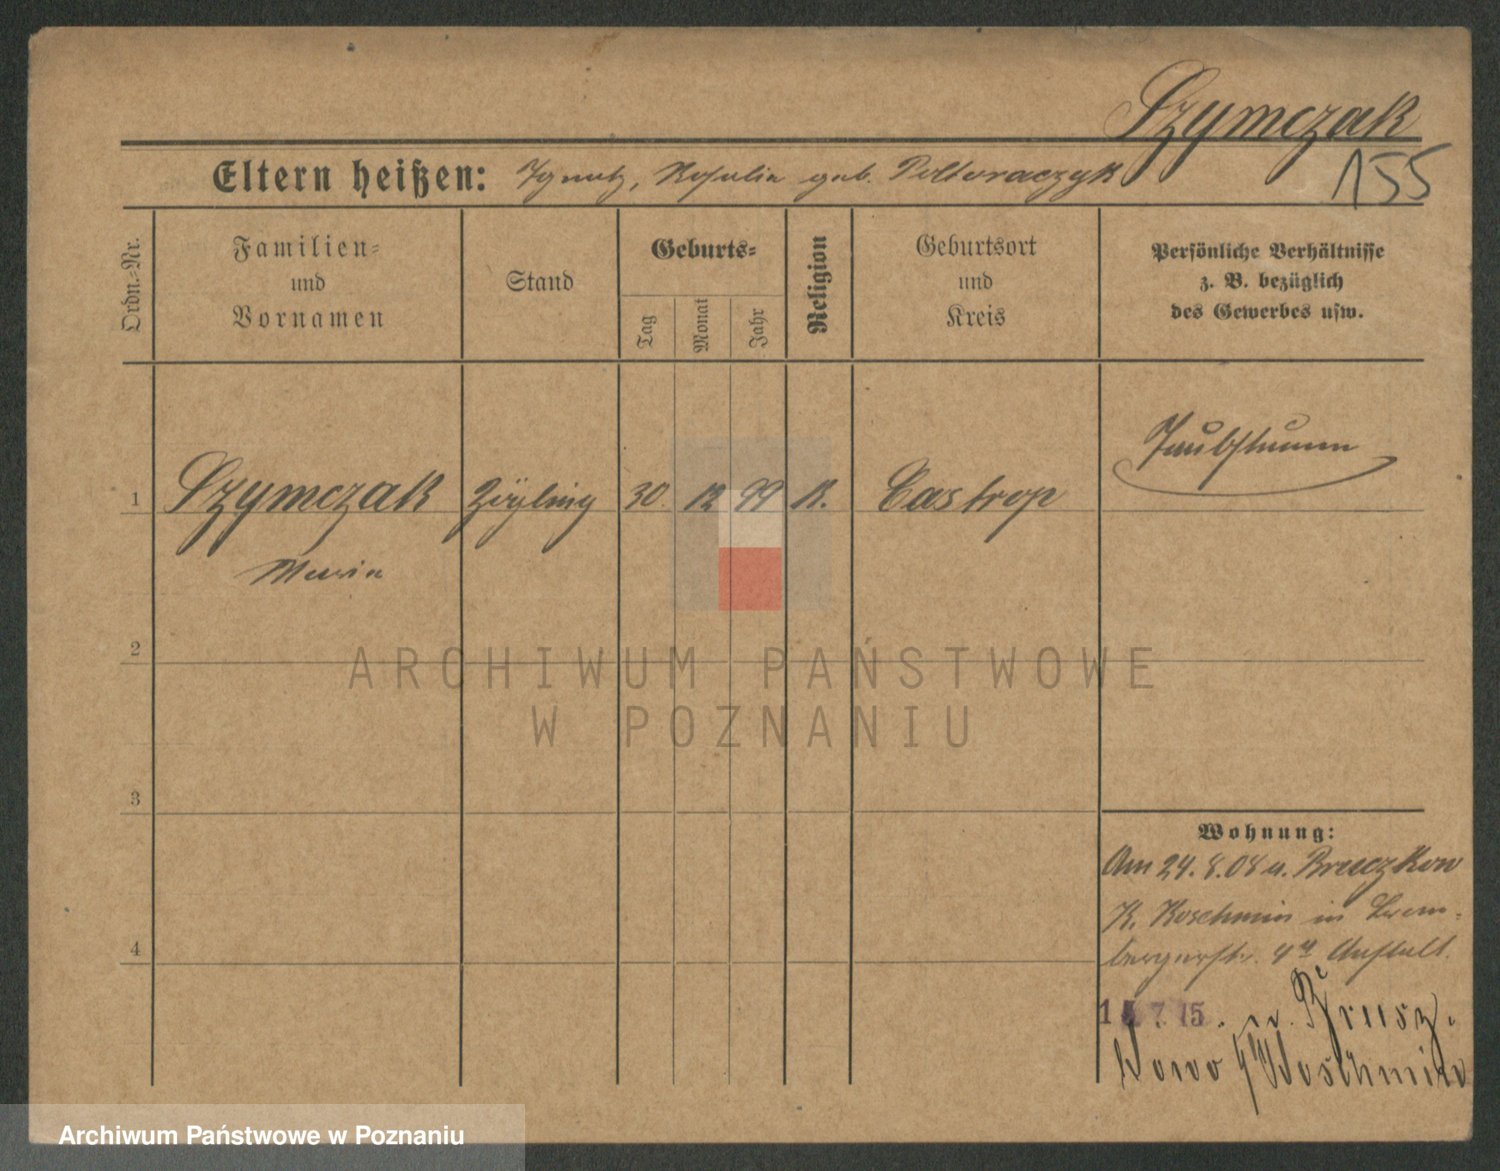 Szymczak
155
Eltern heißen: Ignatz, Rosalia geb. Poltoraczyk
Ordn.-Nr.
Familien-
und
Vornamen
Stand
Geburts-
Tag
Monat
Jahr
Religion
Geburtsort
und
Kreis
Persönliche Verhältnisse
z. B. bezüglich
des Gewerbes usw.
1
Szymczak
Maria
Zögling
30.
12
99
K.
Castrop
Taubstumm
2
3
4
Wohnung:
Am 24. 8. 08 u. Bruczkow
K. Koschmin in Brom-
bergerstr. 4a Anstalt.
7. 15. n. Brusz.
kowo Koschmin
ARCHIWUM PAŃSTWOWE
W POZNANIU
Archiwum Państwowe w Poznaniu